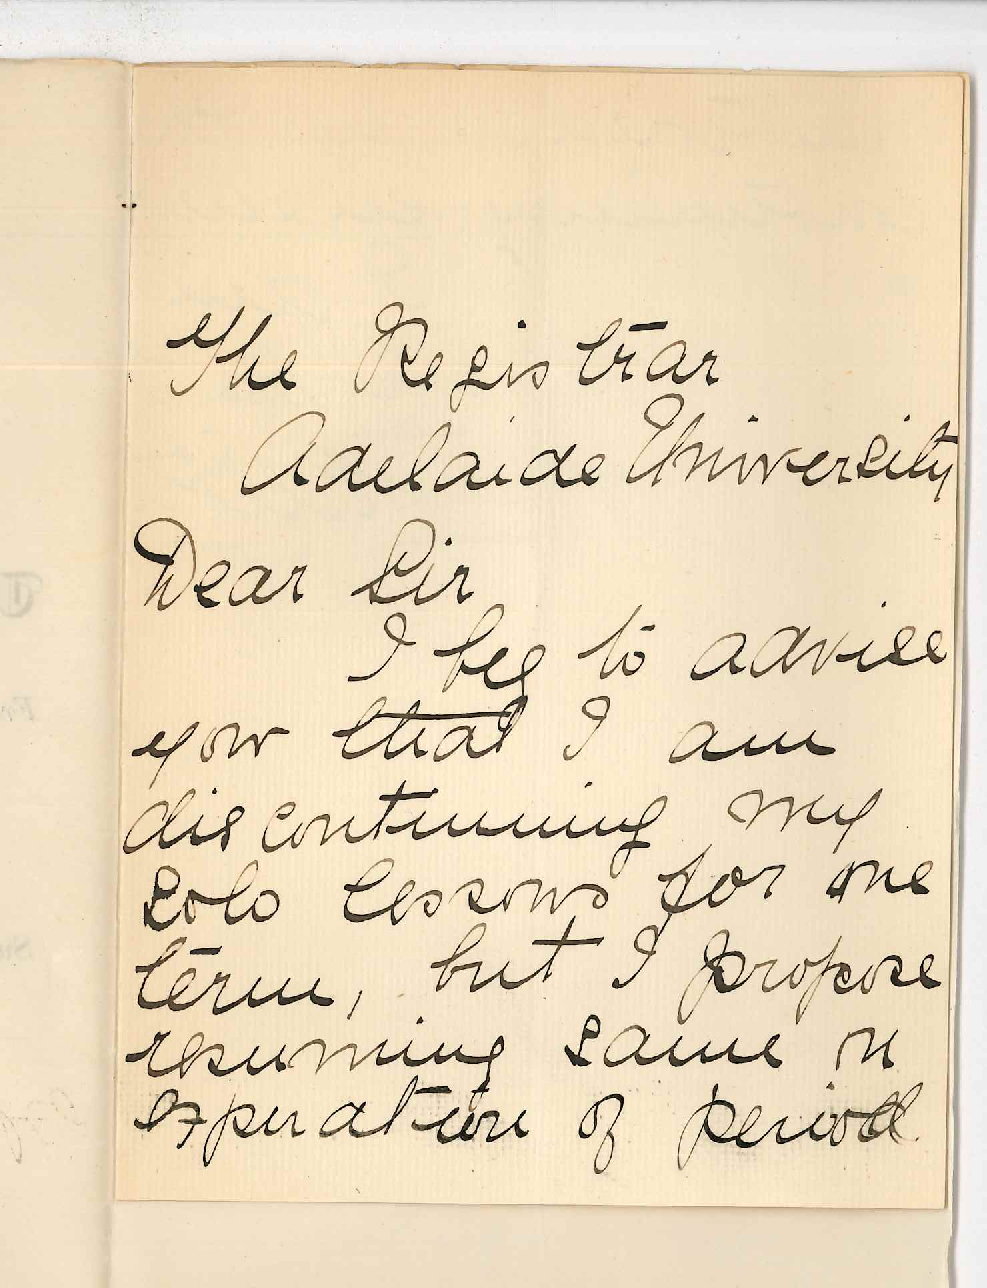 The Registrar
Adelaide University
Dear Sir
I beg to advise
you that I am
discontinuing my
Solo lessons for one
term, but I propose
resuming same on
expiration of period